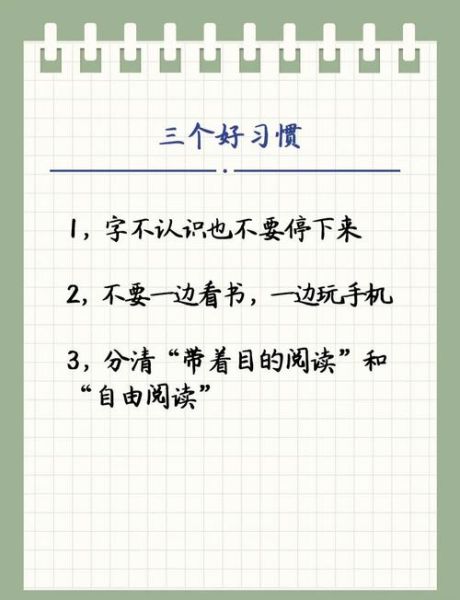 三个好习惯
1，字不认识也不要停下来
2，不要一边看书，一边玩手机
3，分清“带着目的阅读”和
“自由阅读”